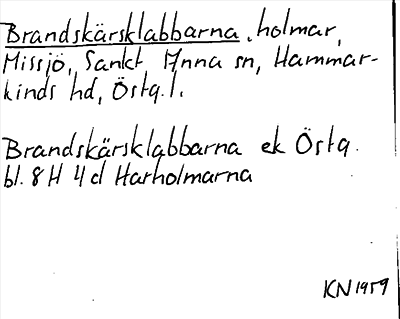 Brandskärsklabbarna, holmar,
Missjö, Sankt Anna sn, Hammar-
kinds hd, Östg. l.
Brandskärsklabbarna ek Östg.
bl. 8 H 4 d Harholmarna
KN 1959